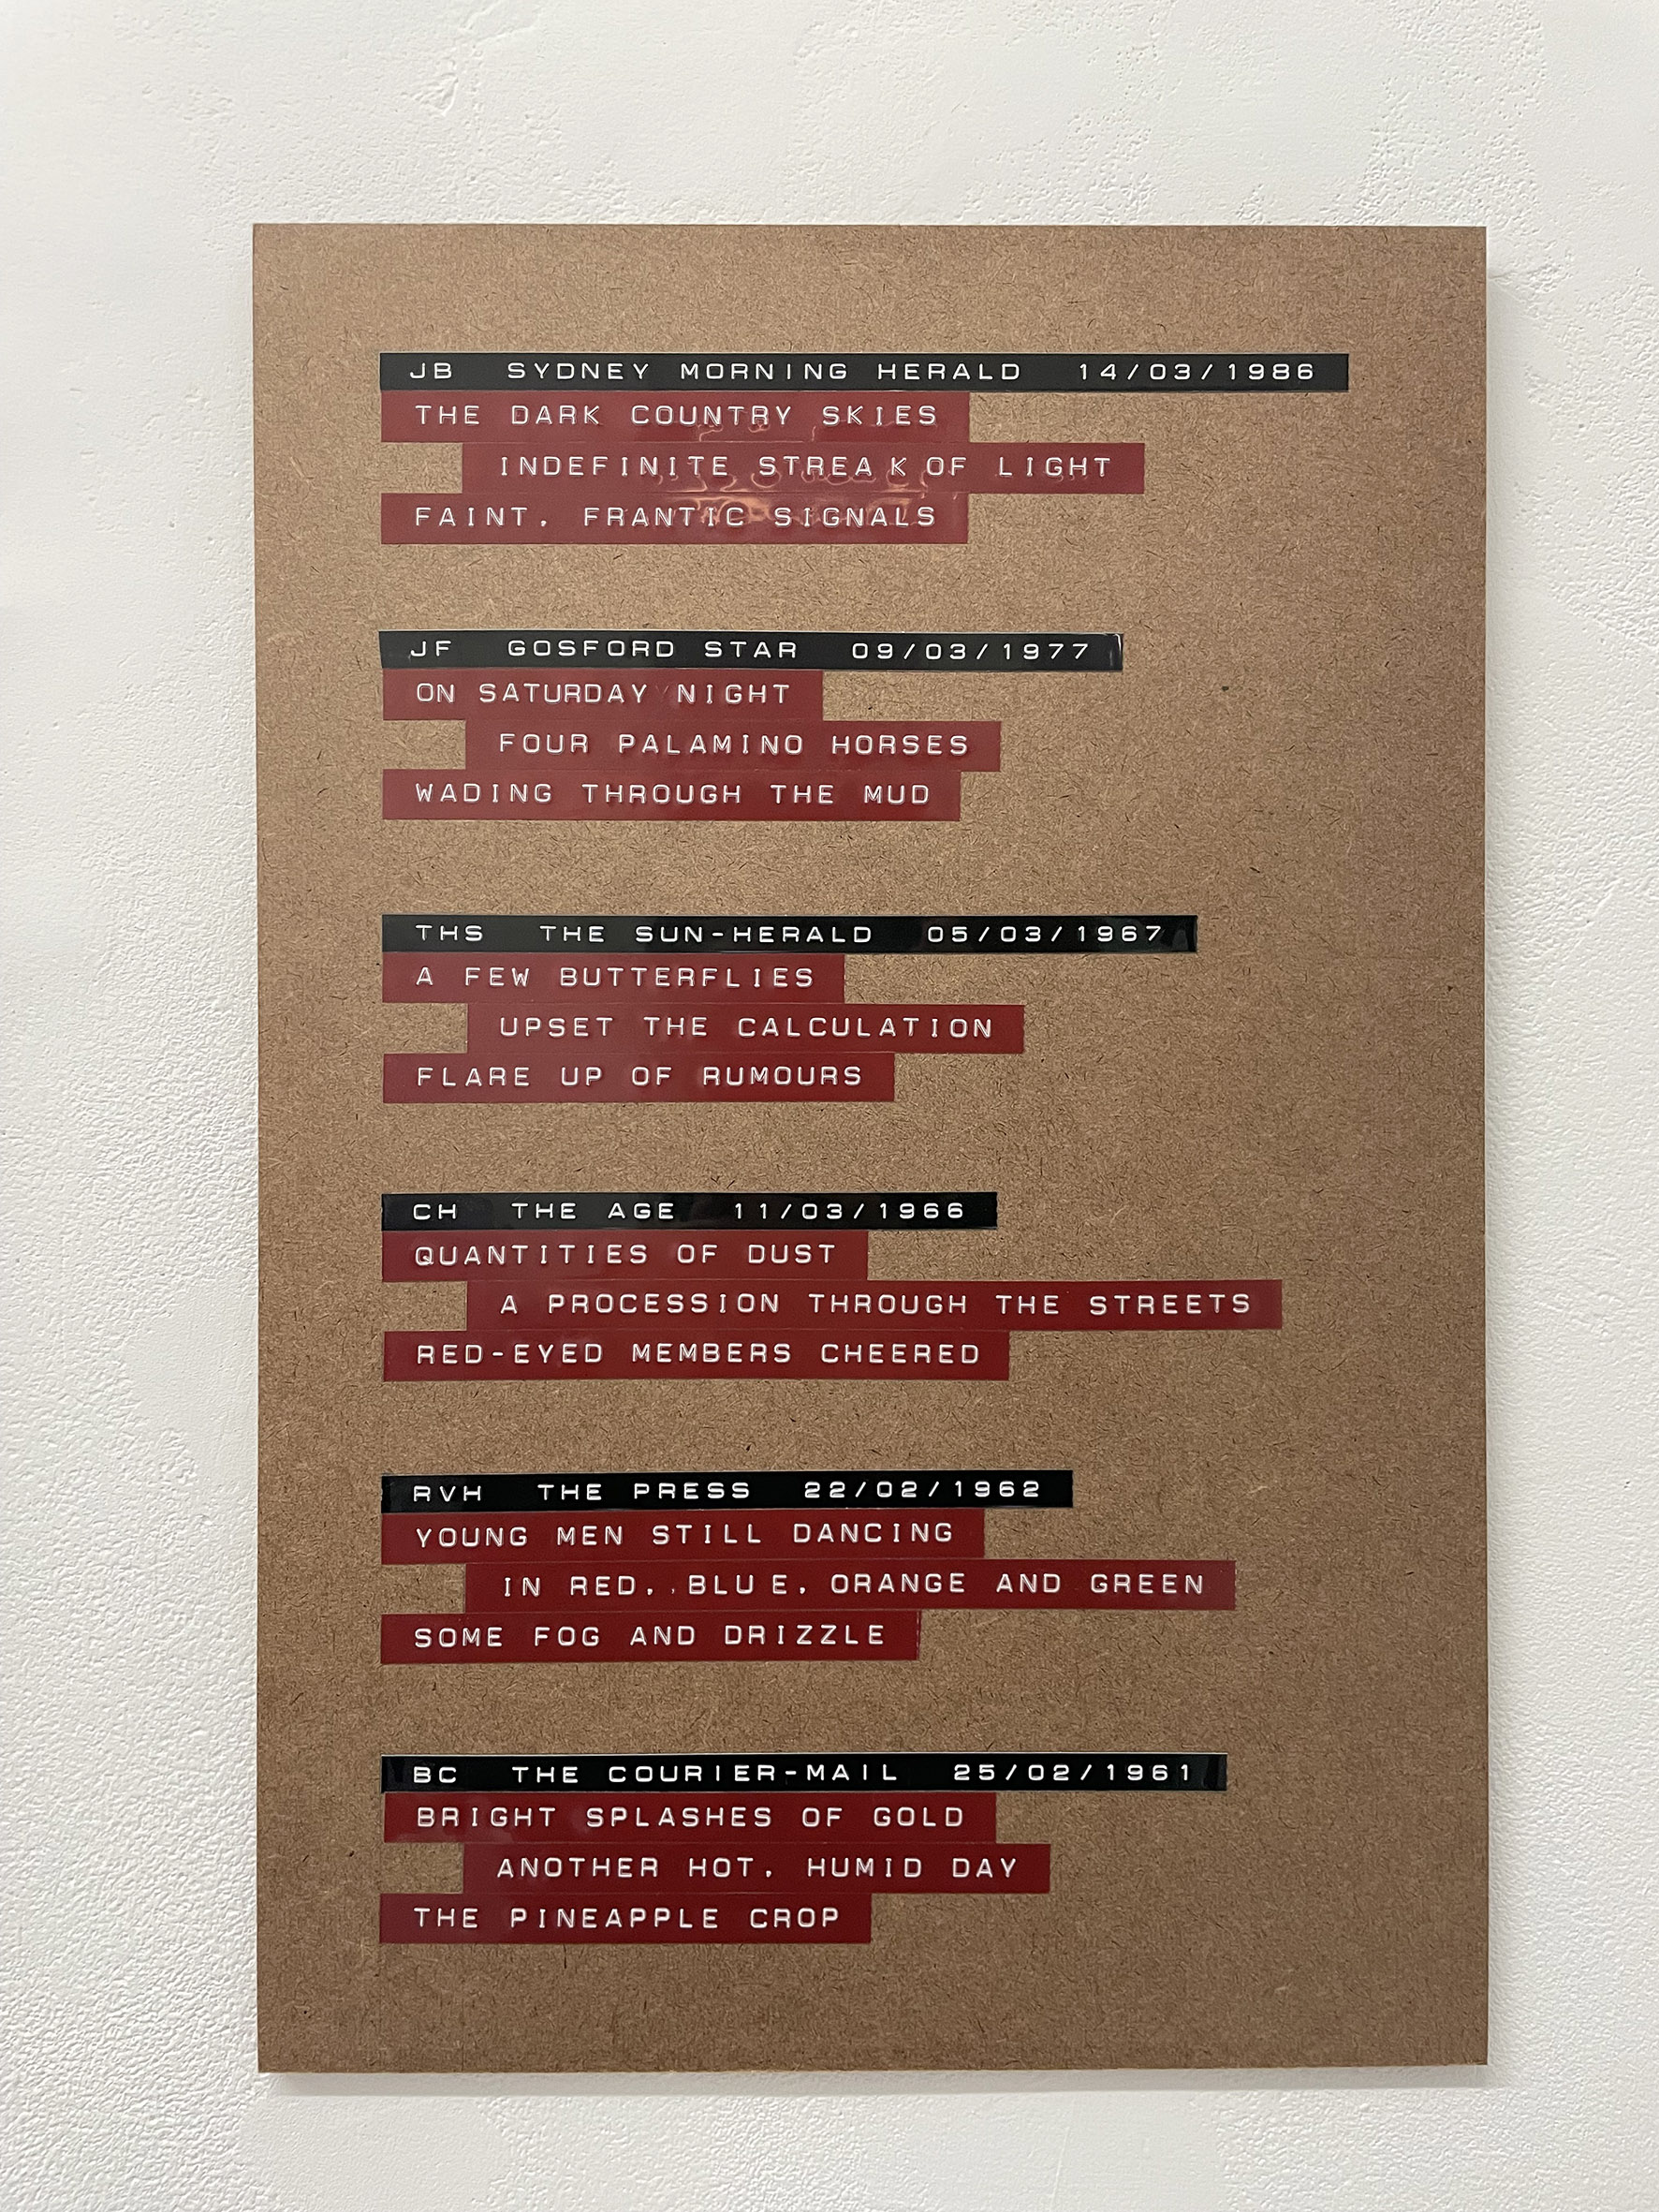 JB SYDNEY MORNING HERALD 14/03/1986
THE DARK COUNTRY SKIES
INDEFINITE STREAK OF LIGHT
FAINT, FRANTIC SIGNALS
JF GOSFORD STAR 09/03/1977
ON SATURDAY NIGHT
FOUR PALAMINO HORSES
WADING THROUGH THE MUD
THS THE SUN-HERALD 05/03/1967
A FEW BUTTERFLIES
UPSET THE CALCULATION
FLARE UP OF RUMOURS
CH THE AGE 11/03/1966
QUANTITIES OF DUST
A PROCESSION THROUGH THE STREETS
RED-EYED MEMBERS CHEERED
RVH THE PRESS 22/02/1962
YOUNG MEN STILL DANCING
IN RED, BLUE, ORANGE AND GREEN
SOME FOG AND DRIZZLE
BC THE COURIER-MAIL 25/02/1961
BRIGHT SPLASHES OF GOLD
ANOTHER HOT, HUMID DAY
THE PINEAPPLE CROP